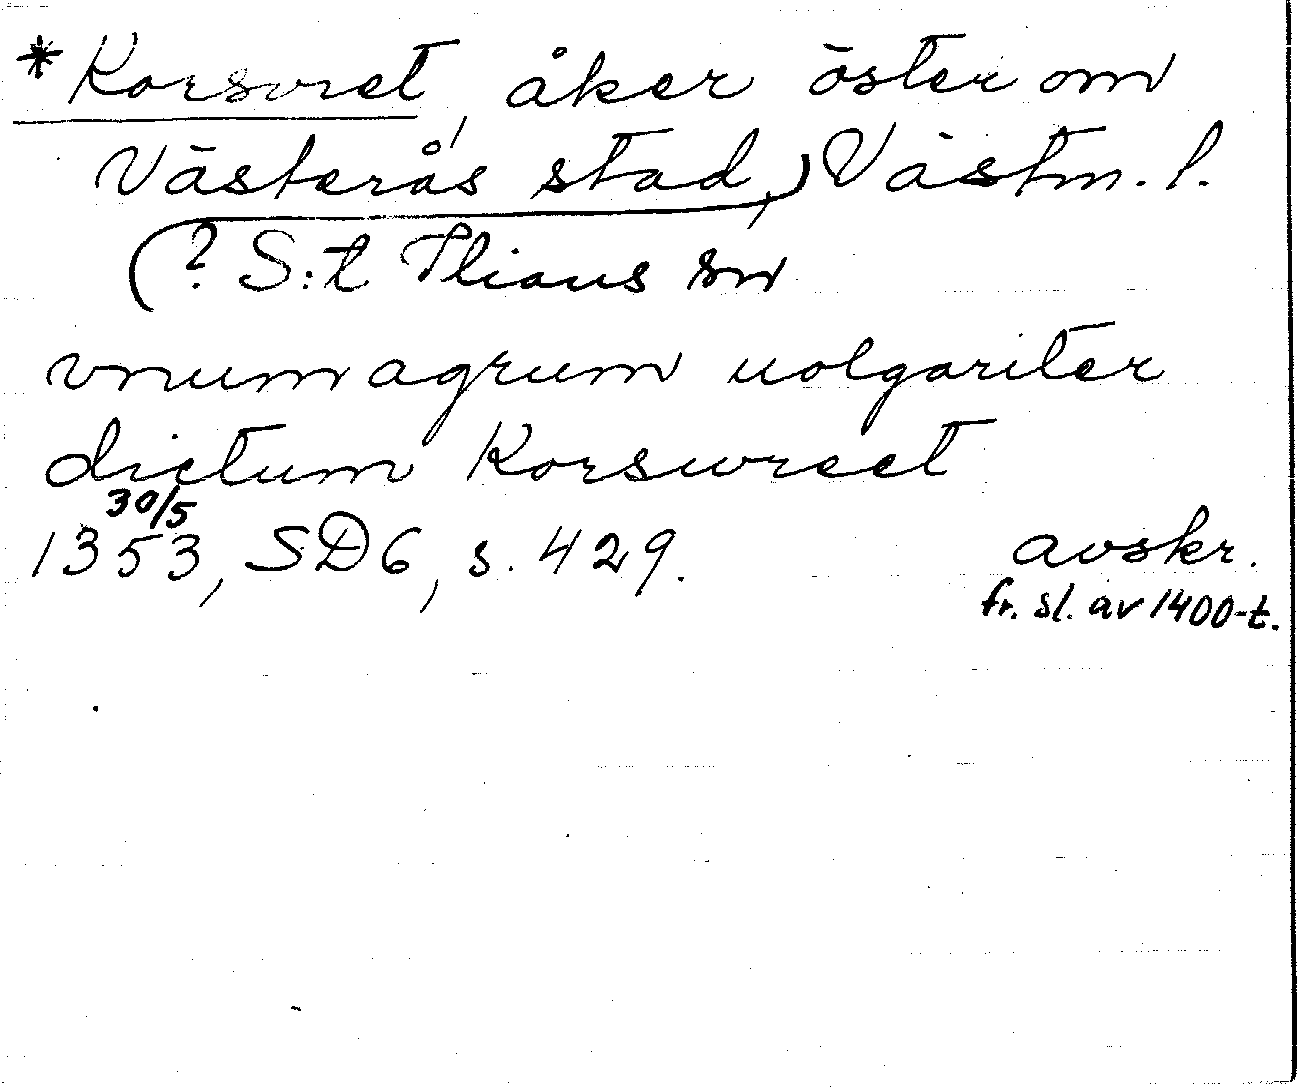 *Korsvret, åker öster om
Västerås stad, Västm. l.
(? S:t Ilians sn
vnum agrum uolgariter
dictum Korswreet
30/5
1353, SD 6, s. 429. avskr.
fr. sl. av 1400-t.